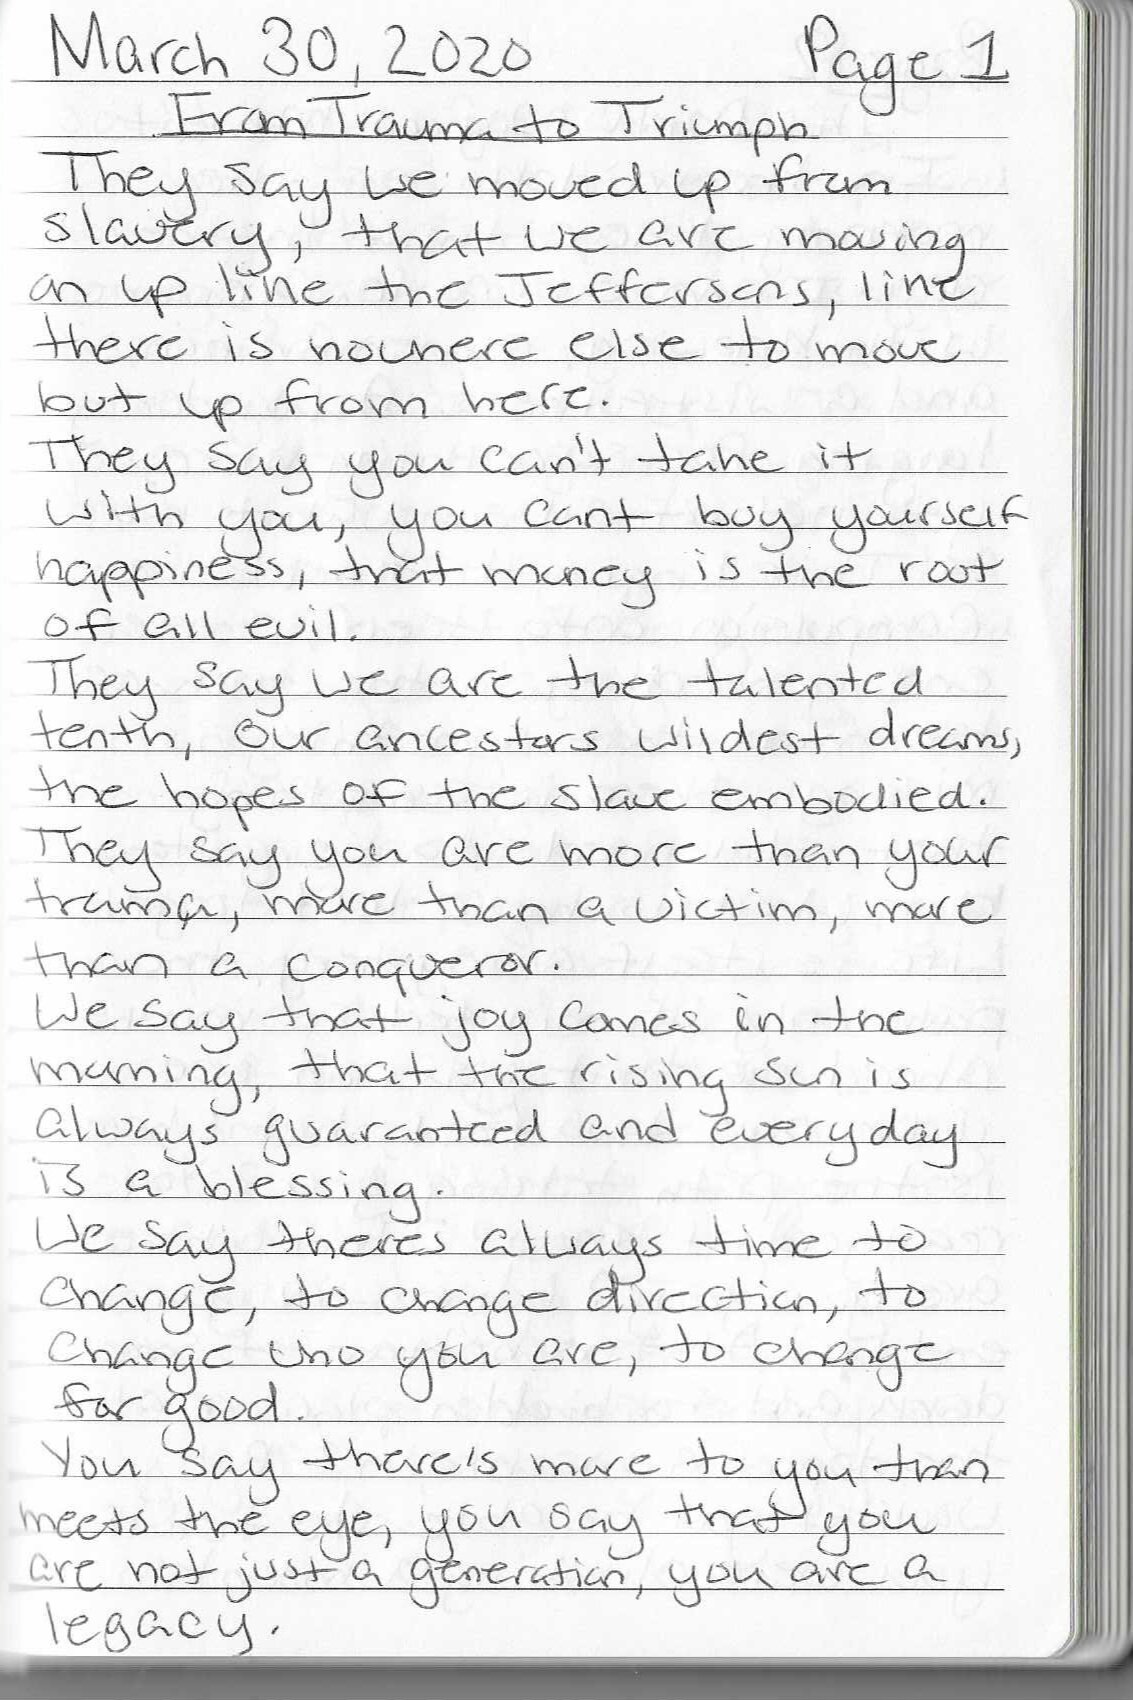 March 30, 2020 Page 1
From Trauma to Triumph
They say we moved up from
slavery, that we are moving
on up like the Jeffersons, like
there is nowhere else to move
but up from here.
They say you can't take it
with you, you cant buy yourself
happiness, that money is the root
of all evil.
They say we are the talented
tenth, Our ancestors wildest dreams,
the hopes of the slave embodied.
They say you are more than your
trama, more than a victim, more
than a conqueror.
We say that joy comes in the
morning, that the rising sun is
always guaranteed and everyday
is a blessing.
We say theres always time to
change, to change direction, to
change who you are, to change
for good.
You say there's more to you than
meets the eye, you say that you
are not just a generation, you are a
legacy.